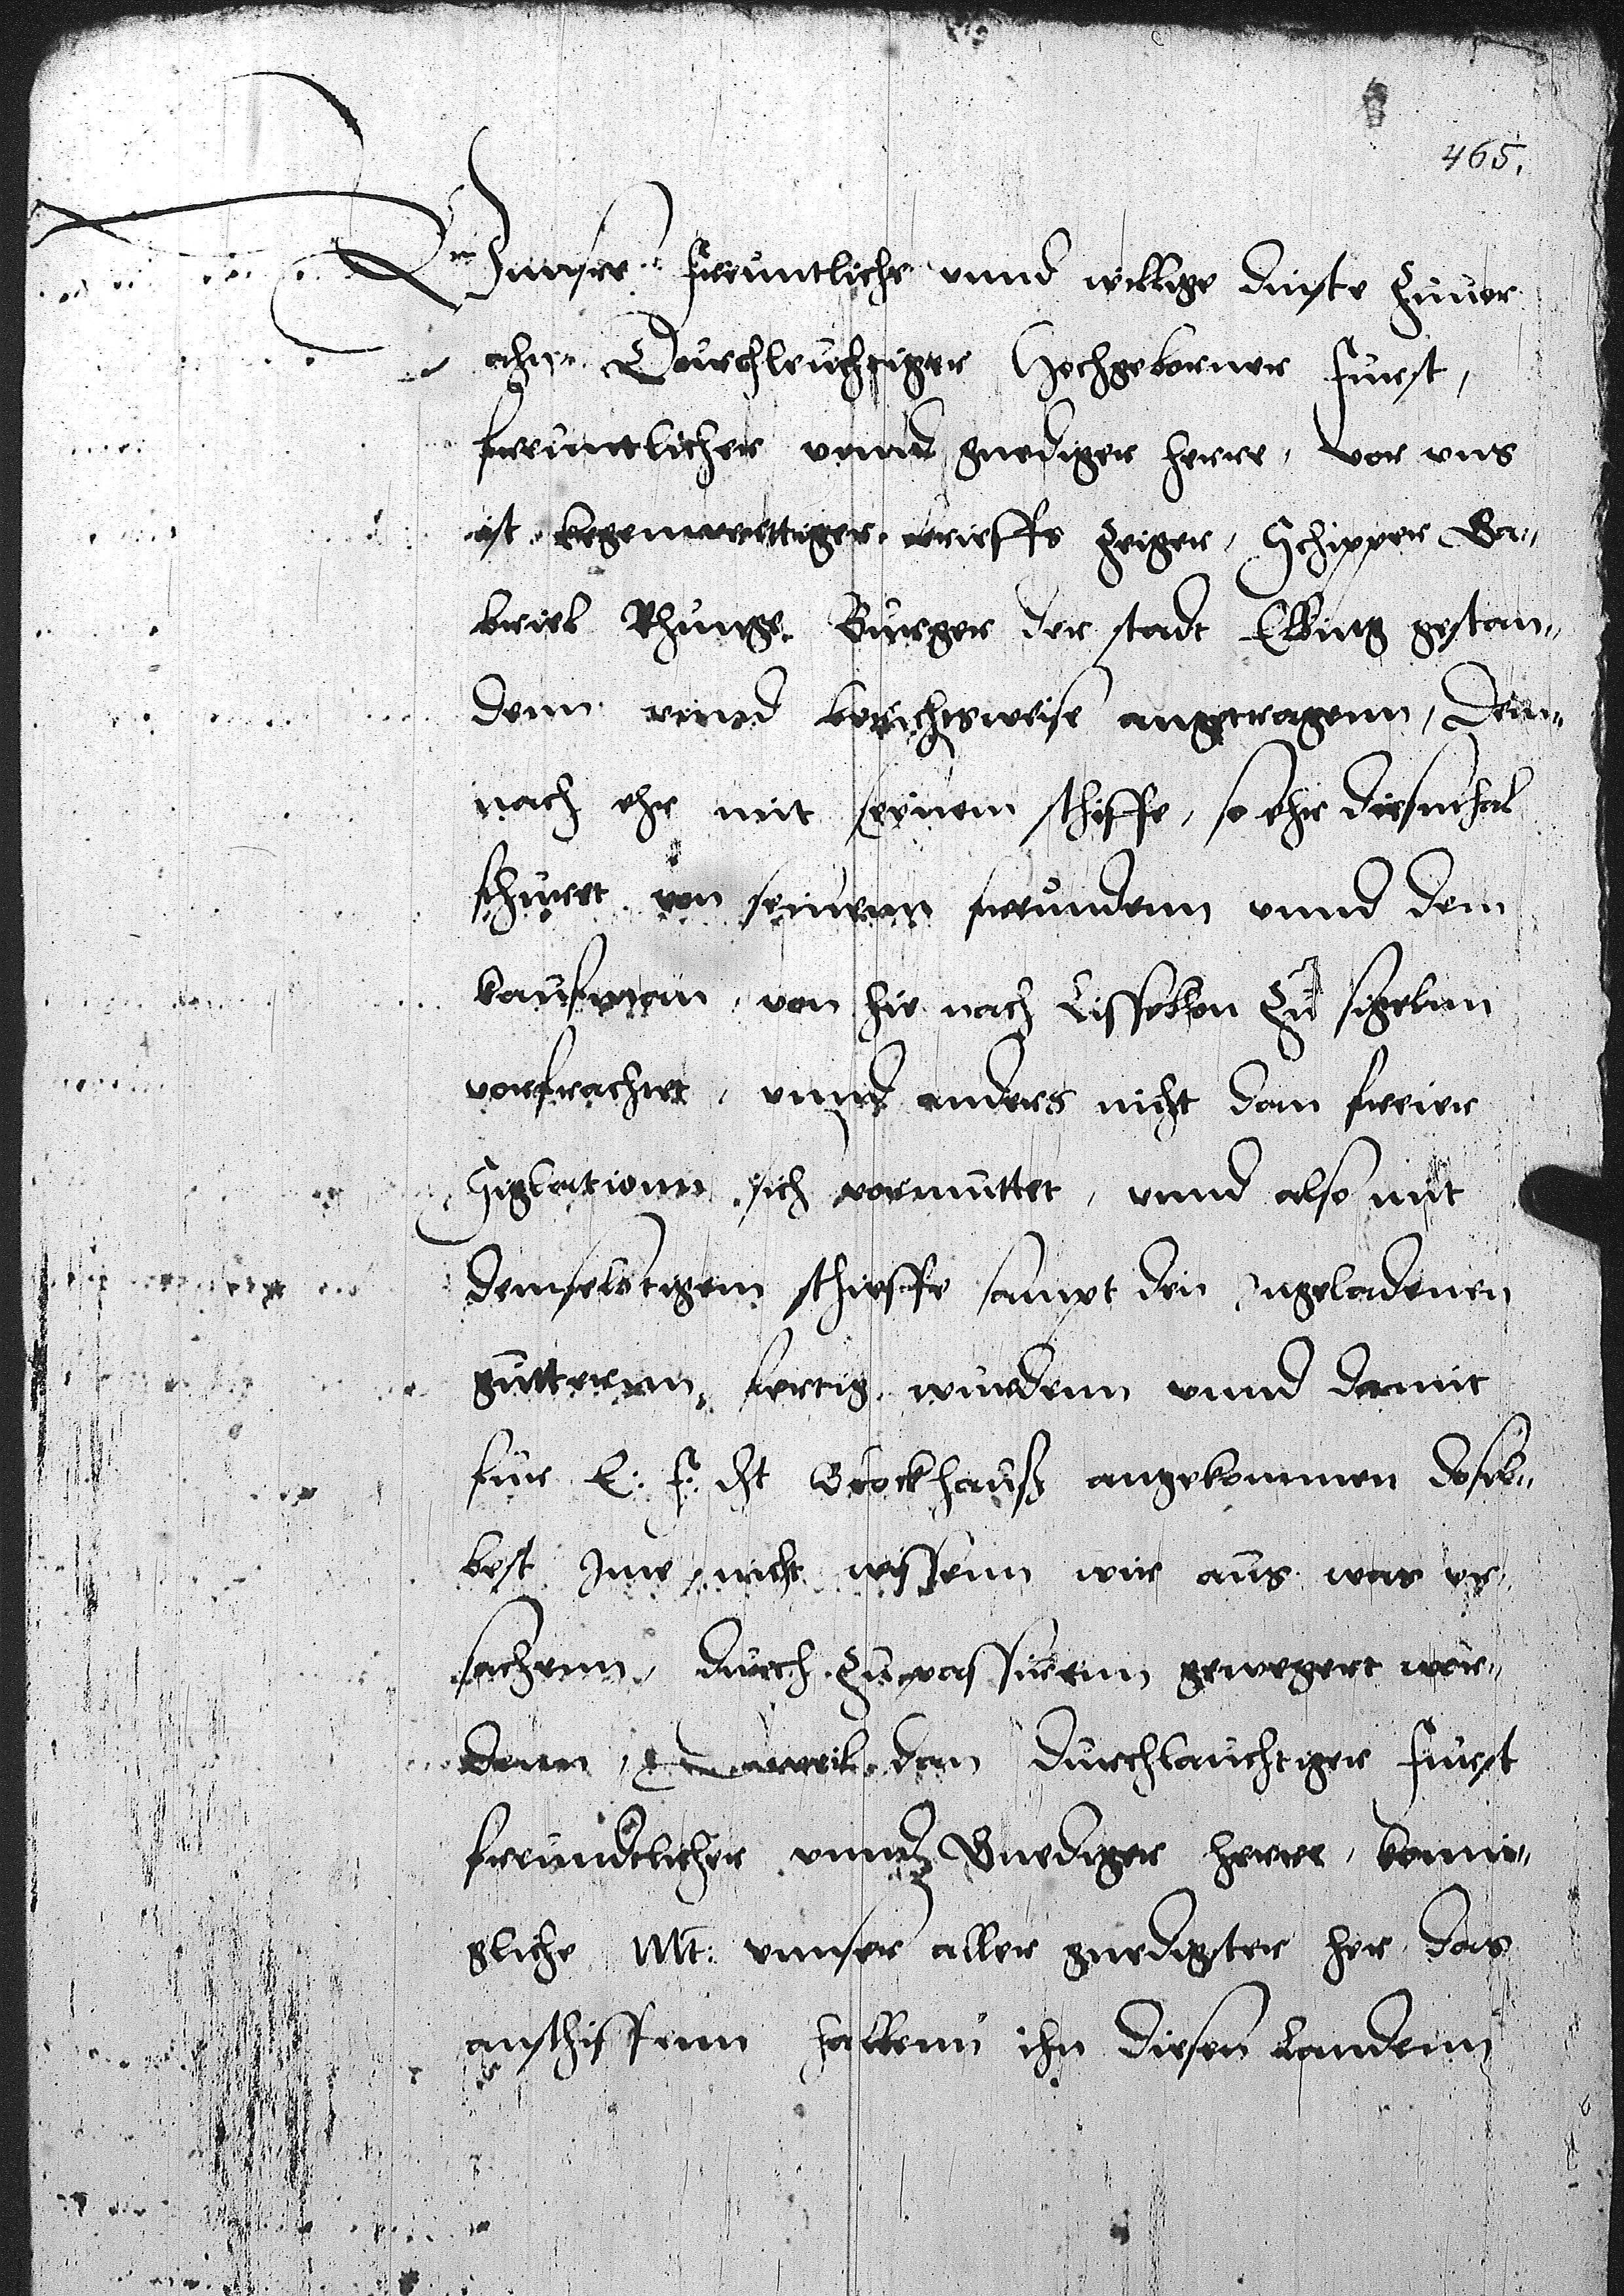 465.
Vnnsere freuntliche vnnd willige dinste zuuor
ahn Durchleuchtiger Hochgeborner Furst,
freuntlicher vnnd gnediger herre, vor vns
ist kegenwerttiger brieffs zeiger, Schipper Ga„
briel Rhunge Burger der stadt Elbing gestan„
denn vnnd berichtsweise angetragenn, Dem„
nach ehr mit seinem schiffe, so ehr diesmhal
fhuret von seinenn freundenn vnnd dem
kaufman, von hie nach Lissebon zu sigelnn
vorfrachtet, vnnd anders nicht dan freier
Siglationn sich vormuttet, vnnd also mit
demselbtigem schieffe sampt den Ingeladenen
gutterenn fertig wurdenn vnnd damit
fur E: f: dt Blockhauß angekommen doselb„
best Ime nicht wissenn wir aus was vr„
sachenn, durch zu passirenn gewegert wor„
denn, weil dan Durchlauchtiger Furst
freundtlicher vnnd Gnediger herre, konni„
gliche Mt: vnnser aller gnedigster her das
anschiffenn halbenn ihn diesen Landenn